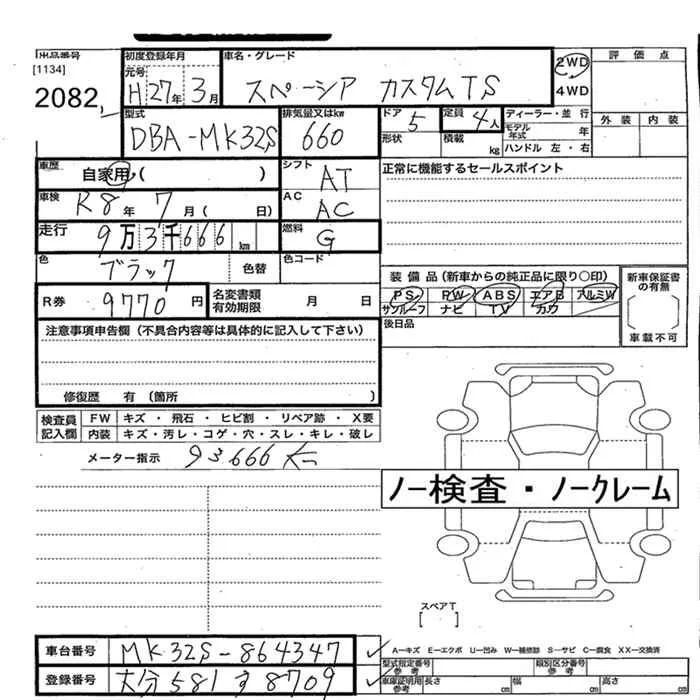 出品番号 初度登録年月 車名・グレード 評価点
[1134] 元号 H27年3月 スペーシア カスタムTS 2WD 4WD
2082 外装 内装
型式 DBA-MK32S 排気量又はkw 660 ドア 5 定員 4人 ディーラー・並行
形状 積載 kg モデル年式 年
ハンドル 左・右
車歴 自家用・( ) シフト AT 正常に機能するセールスポイント
車検 R8年7月( 日) AC AC
走行 9万3千666km 燃料 G
色 ブラック 色替 色コード
装備品(新車からの純正品に限り○印) 新車保証書の有無
R券 9770円 名変書類有効期限 月 日 PS PW ABS エアB アルミW
サンルーフ ナビ TV カワ
後日品 車載不可
注意事項申告欄(不具合内容等は具体的に記入して下さい)
修復歴 有(箇所 )
検査員記入欄 FW キズ・飛石・ヒビ割・リペア跡・X要
内装 キズ・汚レ・コゲ・穴・スレ・キレ・破レ
メーター指示 93666
ノー検査・ノークレーム
スペアT
[ ]
車台番号 MK32S-864347 A-キズ E-エクボ U-凹み W-補修跡 S-サビ C-腐食 XX-交換済
型式指定番号 参考 類別区分番号 参考
登録番号 大分581す8709 車庫証明用参考 長さ cm 幅 cm 高さ cm